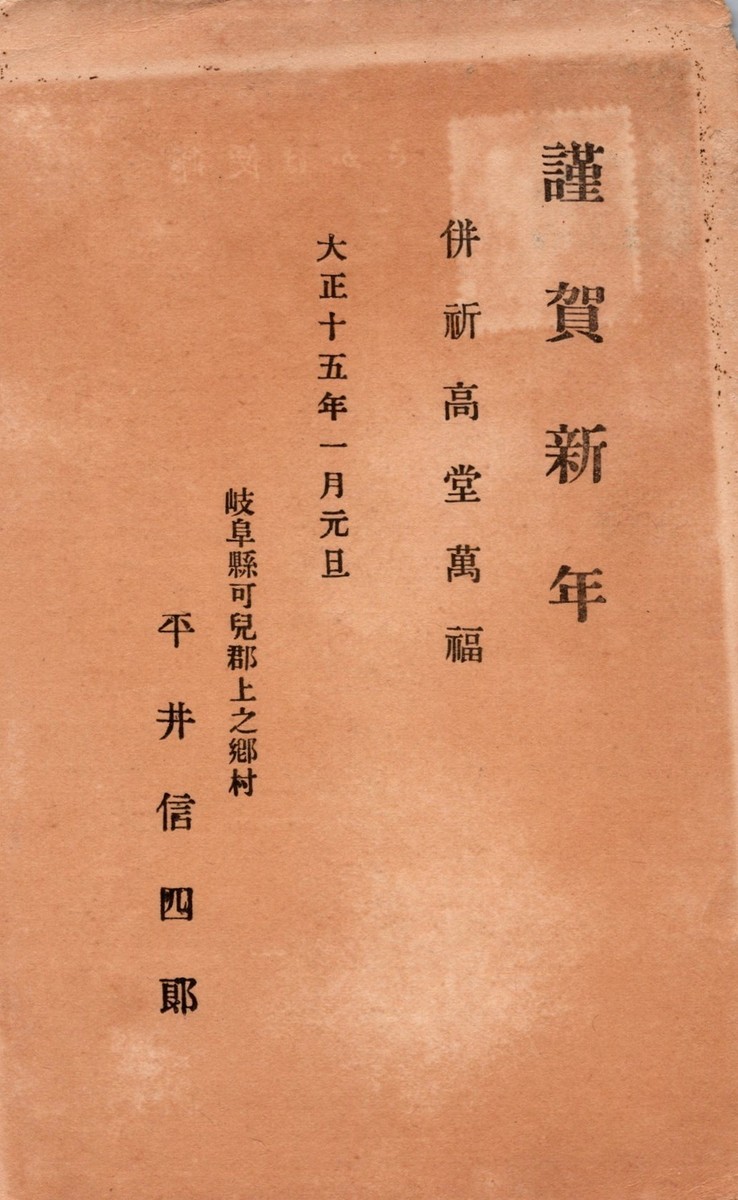 謹賀新年
併祈高堂萬福
大正十五年一月元旦
岐阜縣可兒郡上之鄕村
平井信四郞